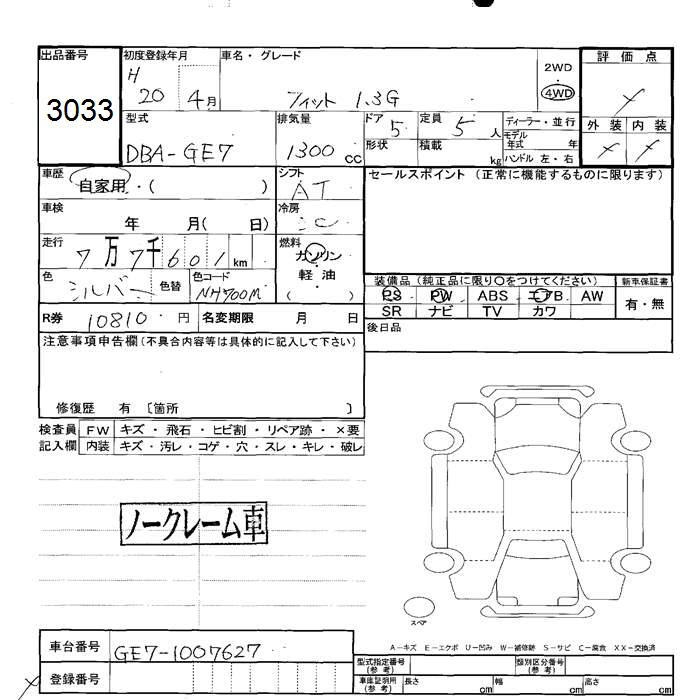 出品番号 初度登録年月 車名・グレード 評価点
3033 H 20 4月 フィット 1.3G 2WD・4WD
外装 内装
型式 排気量 ドア 5 定員 5人 ディーラー・並行
DBA-GE7 1300cc 形状 積載 kg モデル年式 年
ハンドル 左・右
車歴 自家用・( ) シフト AT セールスポイント (正常に機能するものに限ります)
車検 年 月( 日) 冷房
走行 7万7千601km 燃料 ガソリン・軽油 ( )
色 シルバー 色替 色コード NH700M
装備品 (純正品に限り○をつけてください) 新車保証書
PS PW ABS エアB AW 有・無
SR ナビ TV カワ
R券 10810円 名変期限 月 日 後日品
注意事項申告欄 (不具合内容等は具体的に記入して下さい)
修復歴 有 〔箇所 〕
検査員 FW キズ・飛石・ヒビ割・リペア跡・×要
記入欄 内装 キズ・汚レ・コゲ・穴・スレ・キレ・破レ
ノークレーム車
スペア
A-キズ E-エクボ U-凹み W-補修跡 S-サビ C-腐食 XX-交換済
車台番号 GE7-1007627
型式指定番号 (参考) 類別区分番号 (参考)
登録番号
車庫証明用 (参考) 長さ cm 幅 cm 高さ cm